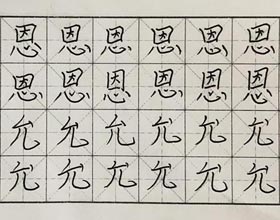 恩恩恩恩恩恩
恩恩恩恩恩恩
允允允允允允
允允允允允允